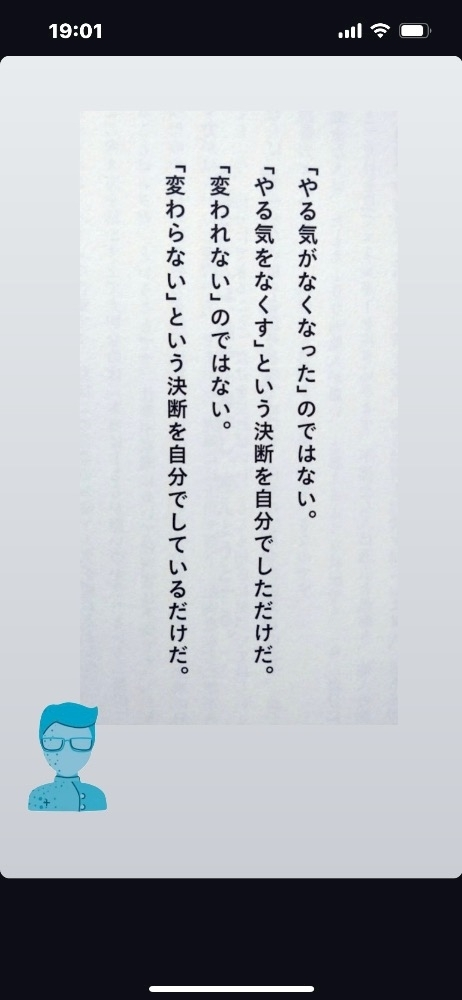 19:01
「やる気がなくなった」のではない。
「やる気をなくす」という決断を自分でしただけだ。
「変われない」のではない。
「変わらない」という決断を自分でしているだけだ。